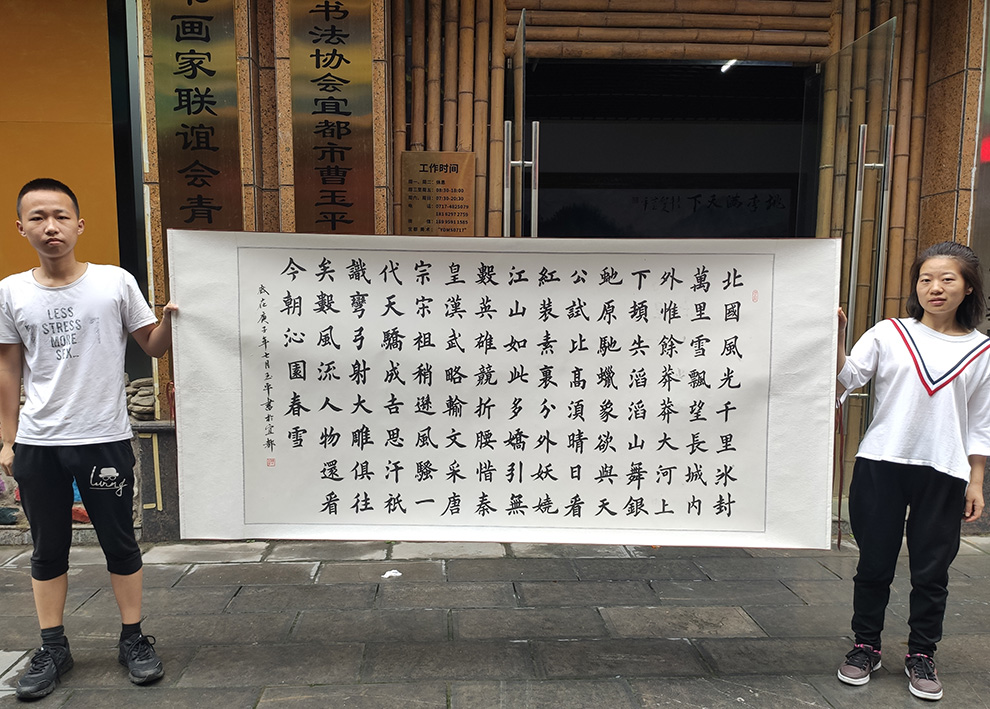 画家联谊会青
书法协会宜都市曹玉平
工作时间
周一、周二：休息
09:30-18:00
07:30-20:30
0717-4821079
桃李满天下
北國風光千里氷封
萬里雪飄望長城内
外惟餘莽莽大河上
下頓失滔滔山舞銀
虵原馳蠟象欲與天
公試比髙須晴日看
紅装素裹分外妖嬈
江山如此多嬌引無
數英雄競折腰惜秦
皇漢武略輸文采唐
宗宋祖稍遜風騷一
代天驕成吉思汗祇
識彎弓射大雕俱往
矣數風流人物還看
今朝沁園春雪
歲在庚子年七月玉平書於宜都
LESS
STRESS
MORE
SEX...
Living